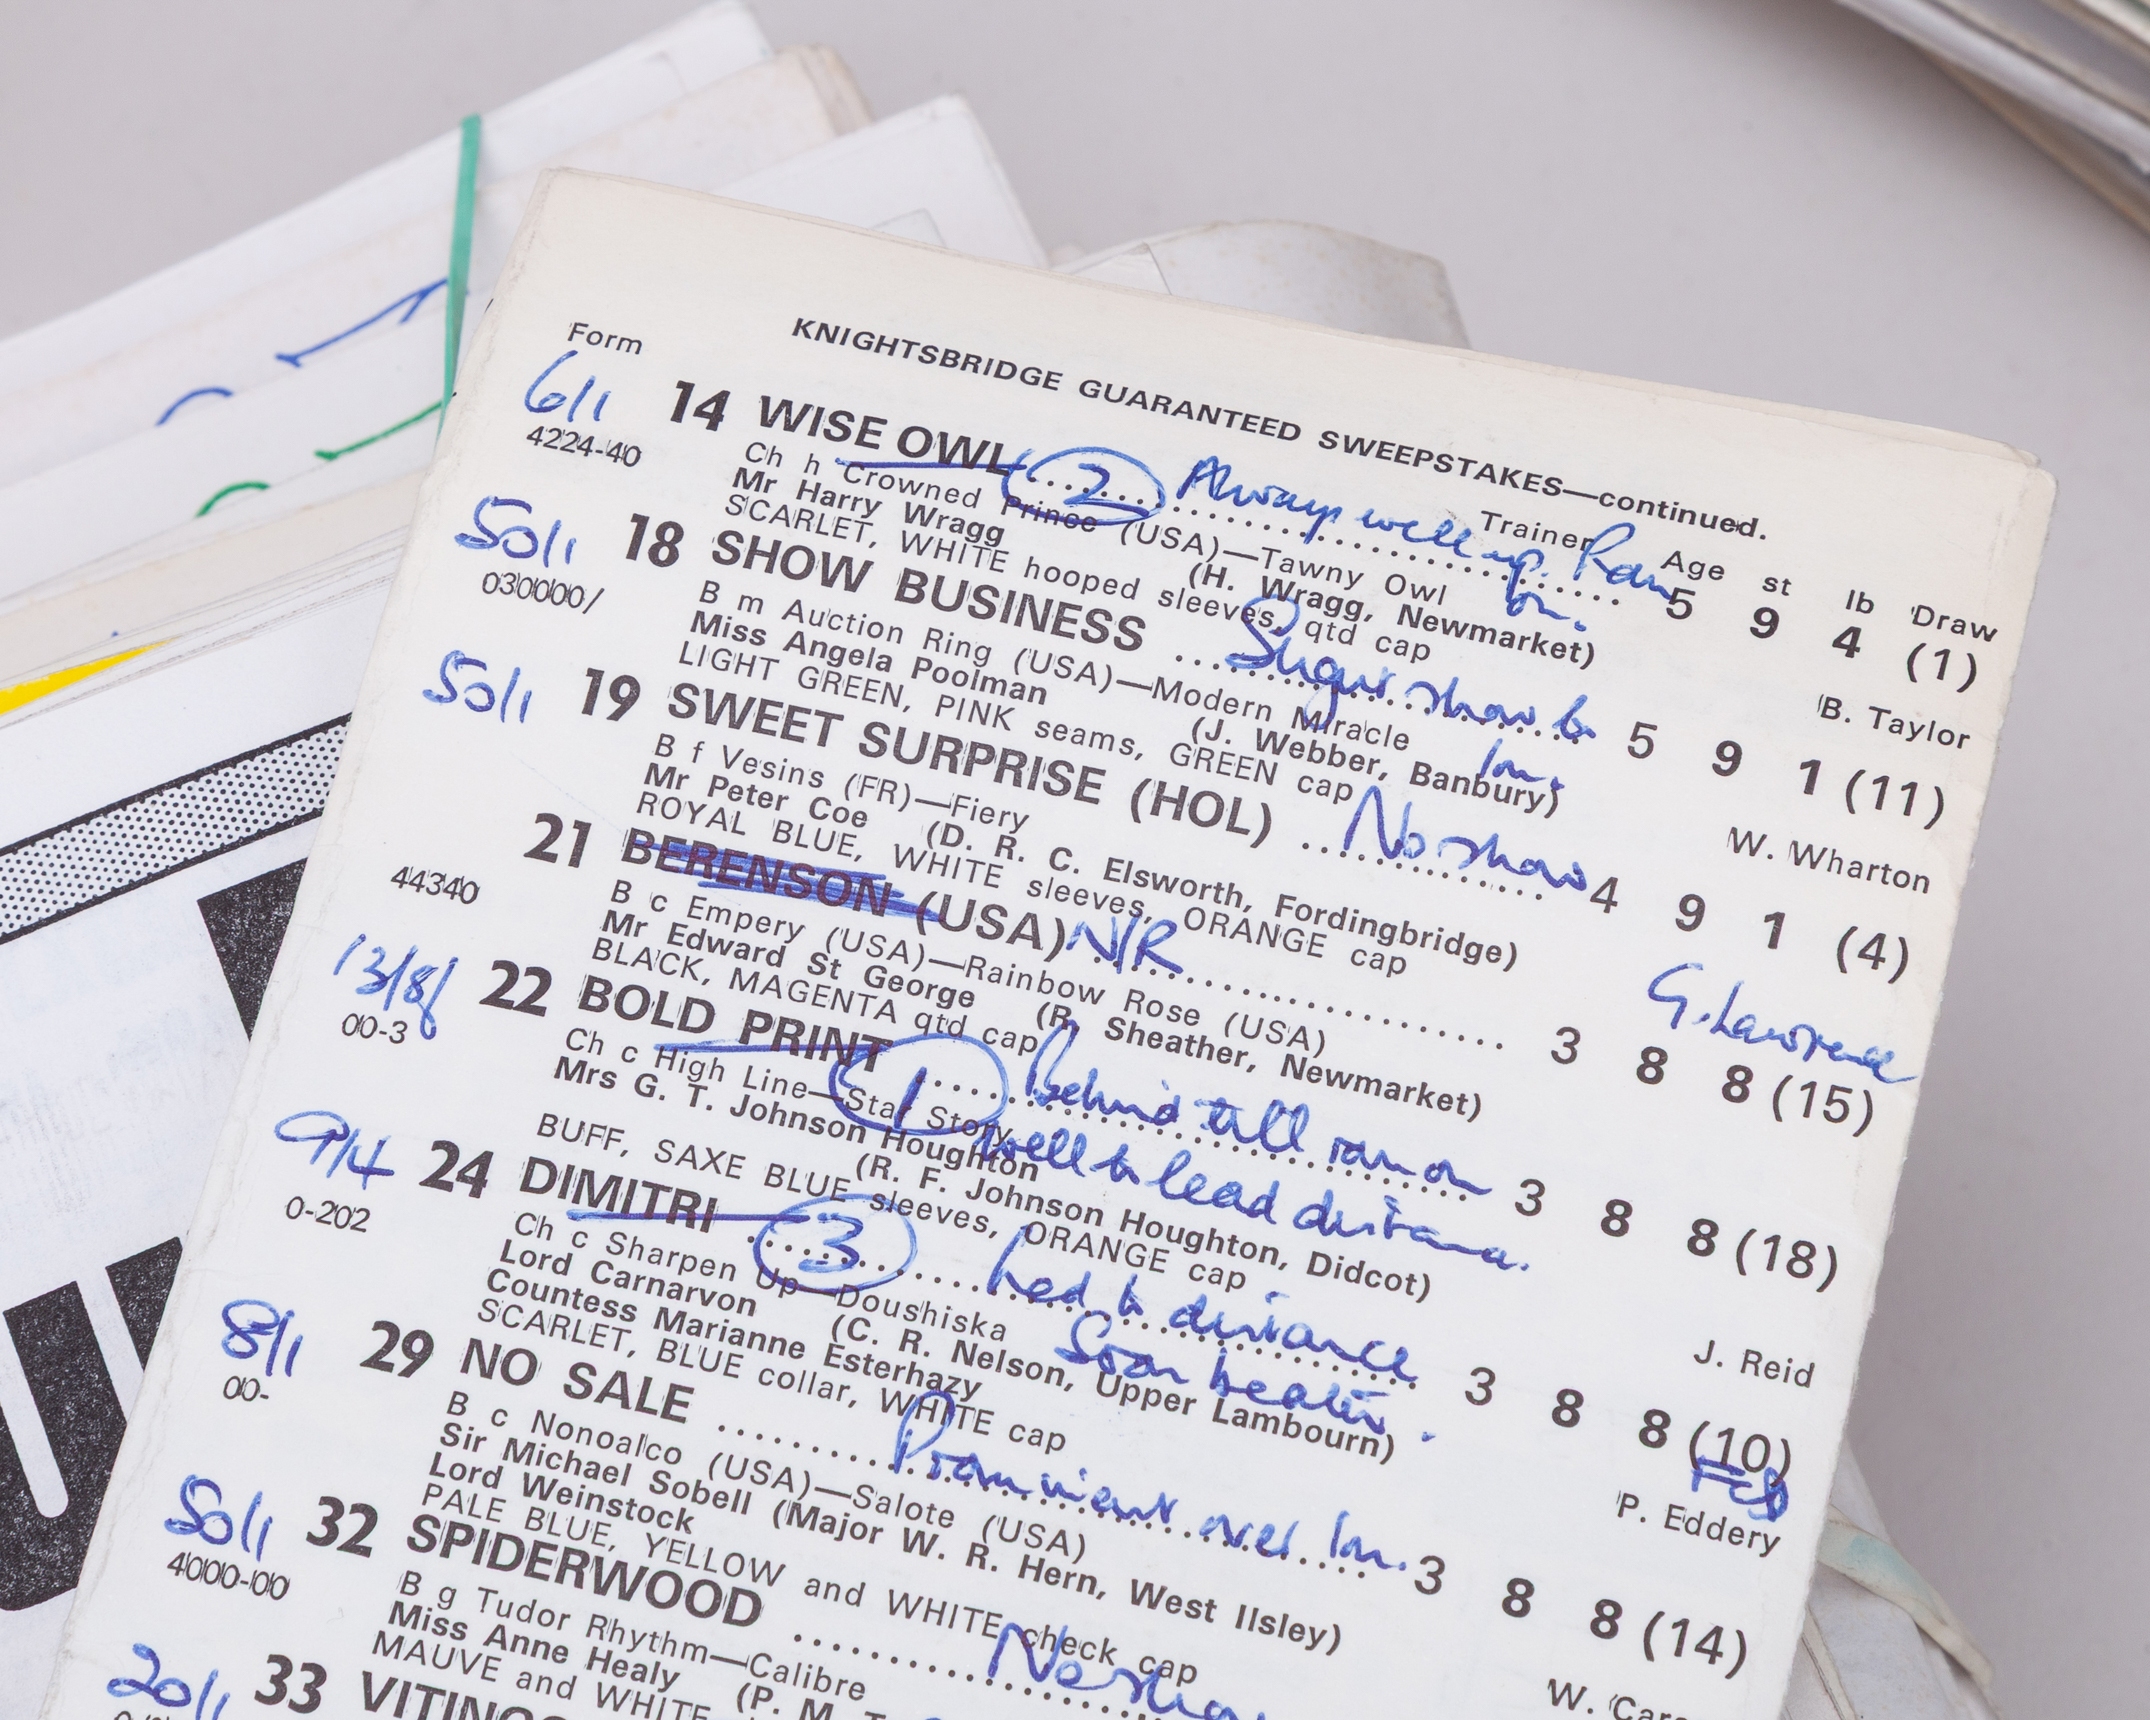 KNIGHTSBRIDGE GUARANTEED SWEEPSTAKES—continued.
Form Trainer Age st lb Draw
6/1 14 WISE OWL 2 Always well up. Ran 5 9 4 (1)
4224-40 Ch h Crowned Prince (USA)—Tawny Owl on.
Mr Harry Wragg (H. Wragg, Newmarket)
SCARLET, WHITE hooped sleeves, qtd cap B. Taylor
50/1 18 SHOW BUSINESS show 5 9 1 (11)
030000/ B m Auction Ring (USA)—Modern Miracle
Miss Angela Poolman (J. Webber, Banbury)
LIGHT GREEN, PINK seams, GREEN cap W. Wharton
50/1 19 SWEET SURPRISE (HOL) No show 4 9 1 (4)
B f Vesins (FR)—Fiery
Mr Peter Coe (D. R. C. Elsworth, Fordingbridge)
ROYAL BLUE, WHITE sleeves, ORANGE cap G. Lawrence
21 BERENSON (USA) N/R 3 8 8 (15)
44340 B c Empery (USA)—Rainbow Rose (USA)
Mr Edward St George (R. Sheather, Newmarket)
BLACK, MAGENTA qtd cap
13/8/ 22 BOLD PRINT 1 Behind till ran on 3 8 8 (18)
00-3 Ch c High Line—Star Story well to lead distance.
Mrs G. T. Johnson Houghton
(R. F. Johnson Houghton, Didcot)
BUFF, SAXE BLUE sleeves, ORANGE cap J. Reid
9/4 24 DIMITRI 3 Led to distance 3 8 8 (10)
0-202 Ch c Sharpen Up—Doushiska Soon beaten.
Lord Carnarvon (C. R. Nelson, Upper Lambourn)
Countess Marianne Esterhazy
SCARLET, BLUE collar, WHITE cap P. Eddery
8/1 29 NO SALE Prominent over 3 8 8 (14)
00- B c Nonoalco (USA)—Salote (USA)
Sir Michael Sobell (Major W. R. Hern, West Ilsley)
Lord Weinstock
PALE BLUE, YELLOW and WHITE check cap W.
50/1 32 SPIDERWOOD No show
4000-00 B g Tudor Rhythm—Calibre
Miss Anne Healy (P. M.
MAUVE and WHITE
20/1 33